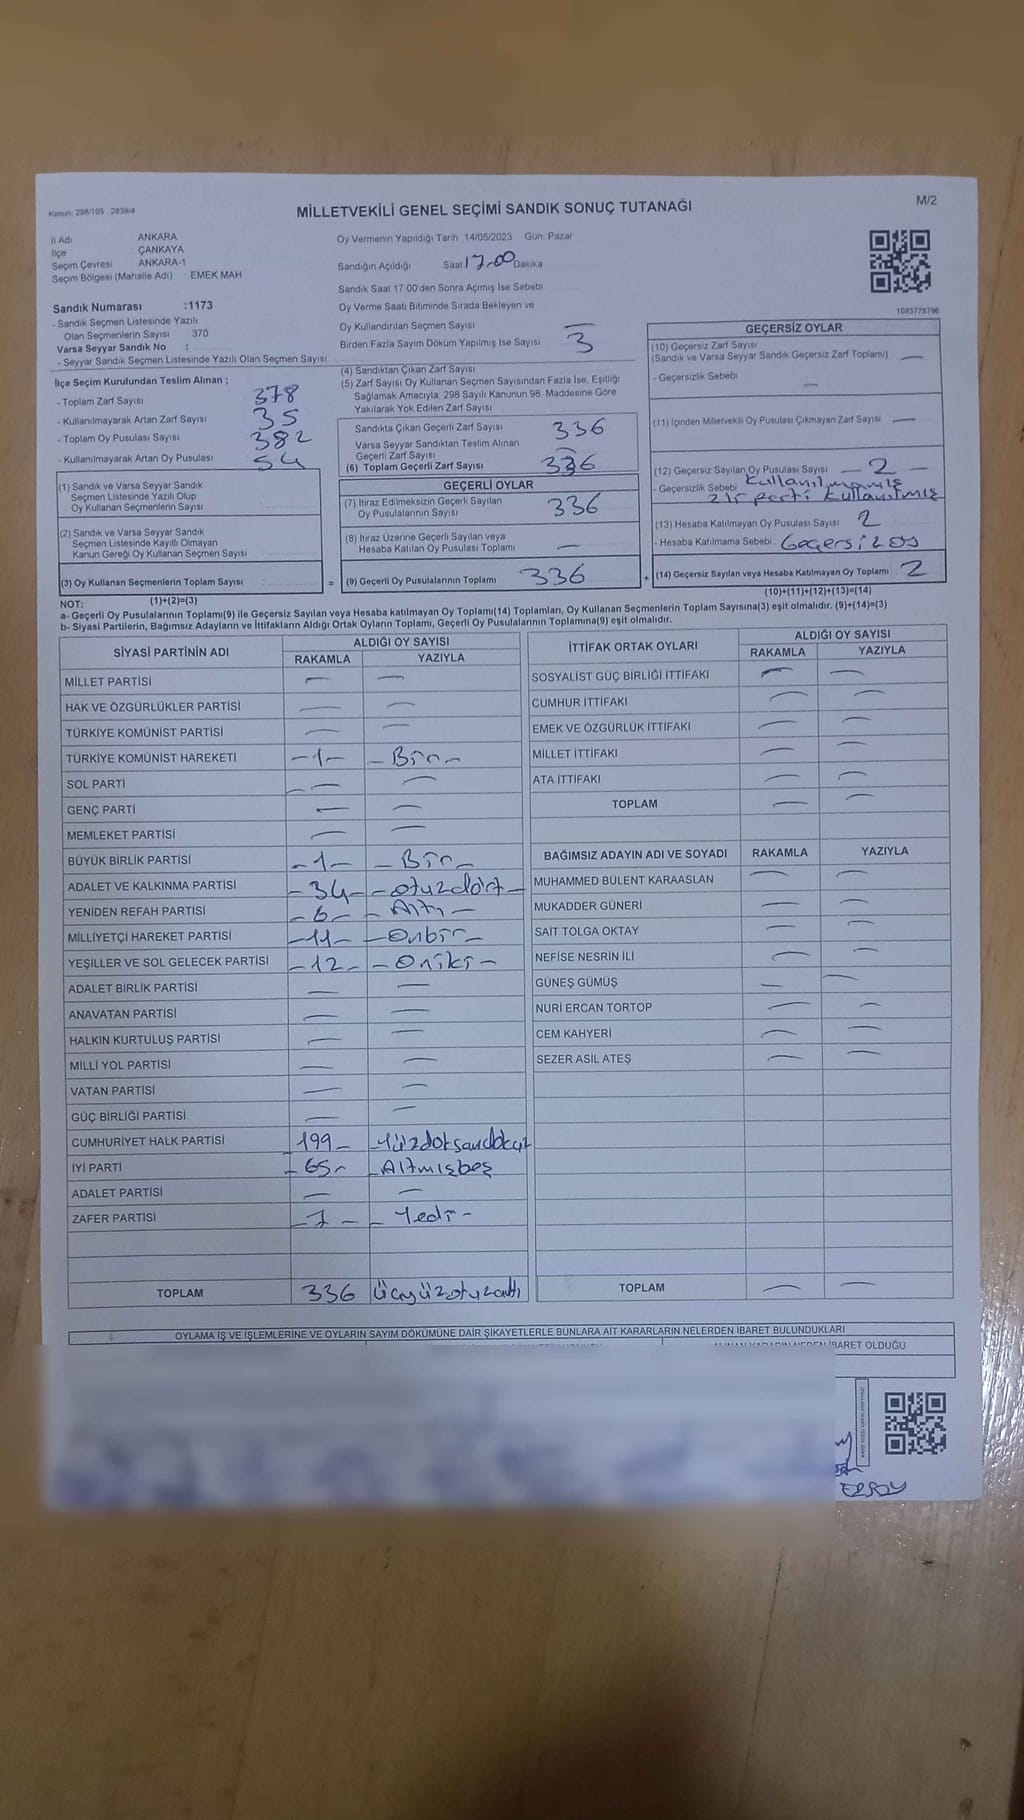 Kanun: 298/105 , 2839/4
MİLLETVEKİLİ GENEL SEÇİMİ SANDIK SONUÇ TUTANAĞI
M/2
İl Adı ANKARA
İlçe ÇANKAYA
Seçim Çevresi ANKARA-1
Seçim Bölgesi (Mahalle Adı) EMEK MAH
Sandık Numarası :1173
- Sandık Seçmen Listesinde Yazılı
Olan Seçmenlerin Sayısı 370
Varsa Seyyar Sandık No :
- Seyyar Sandık Seçmen Listesinde Yazılı Olan Seçmen Sayısı
İlçe Seçim Kurulundan Teslim Alınan ;
- Toplam Zarf Sayısı 378
- Kullanılmayarak Artan Zarf Sayısı 35
- Toplam Oy Pusulası Sayısı 382
- Kullanılmayarak Artan Oy Pusulası 54
(1) Sandık ve Varsa Seyyar Sandık
Seçmen Listesinde Yazılı Olup
Oy Kullanan Seçmenlerin Sayısı
(2) Sandık ve Varsa Seyyar Sandık
Seçmen Listesinde Kayıtlı Olmayan
Kanun Gereği Oy Kullanan Seçmen Sayısı
(3) Oy Kullanan Seçmenlerin Toplam Sayısı =
(1)+(2)=(3)
Oy Vermenin Yapıldığı Tarih 14/05/2023 Gün: Pazar
Sandığın Açıldığı Saat 17.00 Dakika
Sandık Saat 17:00'den Sonra Açımış İse Sebebi
Oy Verme Saati Bitiminde Sırada Bekleyen ve
Oy Kullandırılan Seçmen Sayısı —
Birden Fazla Sayım Döküm Yapılmış İse Sayısı 3
(4) Sandıktan Çıkan Zarf Sayısı
(5) Zarf Sayısı Oy Kullanan Seçmen Sayısından Fazla İse, Eşitliği
Sağlamak Amacıyla, 298 Sayılı Kanunun 98. Maddesine Göre
Yakılarak Yok Edilen Zarf Sayısı
Sandıkta Çıkan Geçerli Zarf Sayısı 336
Varsa Seyyar Sandıktan Teslim Alınan
Geçerli Zarf Sayısı —
(6) Toplam Geçerli Zarf Sayısı 336
GEÇERLİ OYLAR
(7) İtiraz Edilmeksizin Geçerli Sayılan
Oy Pusulalarının Sayısı 336
(8) İtiraz Üzerine Geçerli Sayılan veya
Hesaba Katılan Oy Pusulası Toplamı —
(9) Geçerli Oy Pusulalarının Toplamı 336 +
1083778796
GEÇERSİZ OYLAR
(10) Geçersiz Zarf Sayısı
(Sandık ve Varsa Seyyar Sandık Geçersiz Zarf Toplamı) —
- Geçersizlik Sebebi —
(11) İçinden Milletvekili Oy Pusulası Çıkmayan Zarf Sayısı —
(12) Geçersiz Sayılan Oy Pusulası Sayısı — 2 —
- Geçersizlik Sebebi Kullanılmamış
parti kullanılmış
(13) Hesaba Katılmayan Oy Pusulası Sayısı 2
- Hesaba Katılmama Sebebi: Geçersiz oy
(14) Geçersiz Sayılan veya Hesaba Katılmayan Oy Toplamı 2
(10)+(11)+(12)+(13)=(14)
NOT:
a- Geçerli Oy Pusulalarının Toplamı(9) ile Geçersiz Sayılan veya Hesaba katılmayan Oy Toplamı(14) Toplamları, Oy Kullanan Seçmenlerin Toplam Sayısına(3) eşit olmalıdır. (9)+(14)=(3)
b- Siyasi Partilerin, Bağımsız Adayların ve İttifakların Aldığı Ortak Oyların Toplamı, Geçerli Oy Pusulalarının Toplamına(9) eşit olmalıdır.
SİYASİ PARTİNİN ADI ALDIĞI OY SAYISI
RAKAMLA YAZIYLA
MİLLET PARTİSİ — —
HAK VE ÖZGÜRLÜKLER PARTİSİ — —
TÜRKİYE KOMÜNİST PARTİSİ — —
TÜRKİYE KOMÜNİST HAREKETİ -1- - Bir -
SOL PARTİ — —
GENÇ PARTİ — —
MEMLEKET PARTİSİ — —
BÜYÜK BİRLİK PARTİSİ -1- - Bir -
ADALET VE KALKINMA PARTİSİ -34- - otuzdört -
YENİDEN REFAH PARTİSİ -6- - Altı -
MİLLİYETÇİ HAREKET PARTİSİ -11- - Onbir -
YEŞİLLER VE SOL GELECEK PARTİSİ -12- - Oniki -
ADALET BİRLİK PARTİSİ — —
ANAVATAN PARTİSİ — —
HALKIN KURTULUŞ PARTİSİ — —
MİLLİ YOL PARTİSİ — —
VATAN PARTİSİ — —
GÜÇ BİRLİĞİ PARTİSİ — —
CUMHURİYET HALK PARTİSİ 199- - Yüzdoksandokuz
İYİ PARTİ - 65 - - Altmışbeş
ADALET PARTİSİ — —
ZAFER PARTİSİ - 7 - - Yedi -
TOPLAM 336 Üçyüzotuzaltı
İTTİFAK ORTAK OYLARI ALDIĞI OY SAYISI
RAKAMLA YAZIYLA
SOSYALİST GÜÇ BİRLİĞİ İTTİFAKI — —
CUMHUR İTTİFAKI — —
EMEK VE ÖZGÜRLÜK İTTİFAKI — —
MİLLET İTTİFAKI — —
ATA İTTİFAKI — —
TOPLAM — —
BAĞIMSIZ ADAYIN ADI VE SOYADI RAKAMLA YAZIYLA
MUHAMMED BÜLENT KARAASLAN — —
MUKADDER GÜNERİ — —
SAİT TOLGA OKTAY — —
NEFİSE NESRİN İLİ — —
GÜNEŞ GÜMÜŞ — —
NURİ ERCAN TORTOP — —
CEM KAHYERİ — —
SEZER ASİL ATEŞ — —
TOPLAM — —
OYLAMA İŞ VE İŞLEMLERİNE VE OYLARIN SAYIM DÖKÜMÜNE DAİR ŞİKAYETLERLE BUNLARA AİT KARARLARIN NELERDEN İBARET BULUNDUKLARI
İBARET OLDUĞU
ERSOY